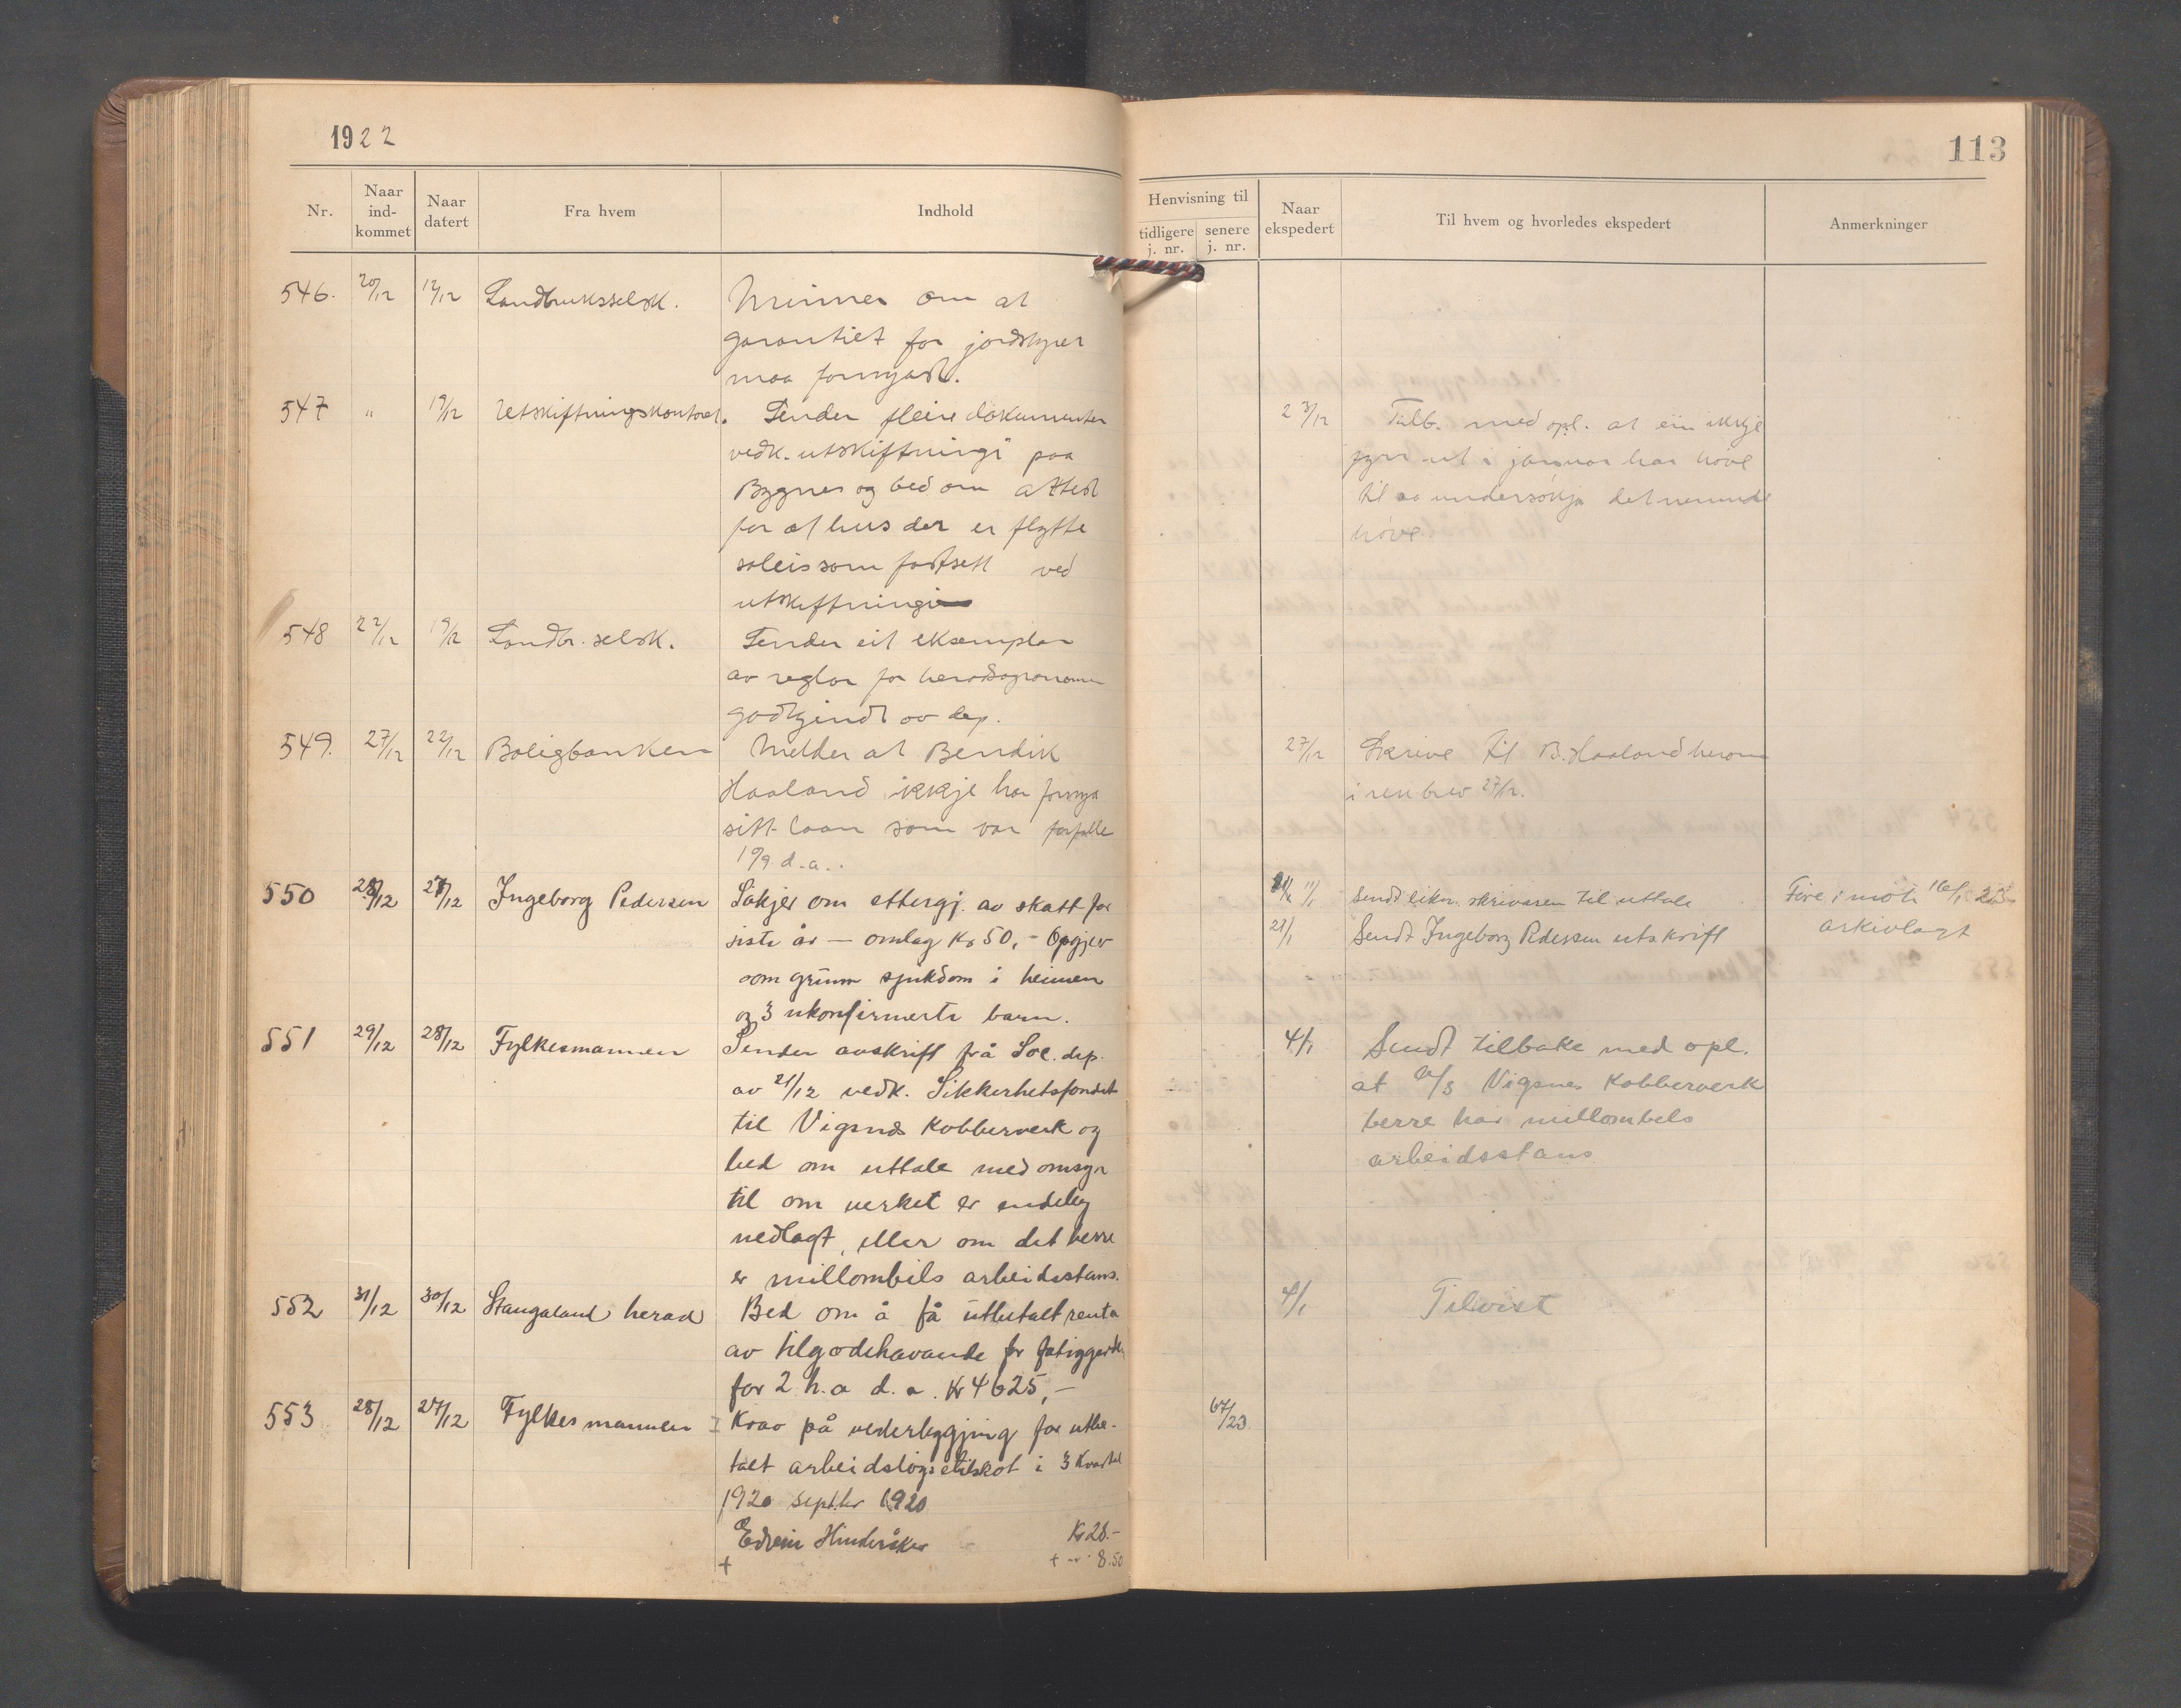 1922
113
Nr.
Naar ind-kommet
Naar datert
Fra hvem
Indhold
Henvisning til
tidligere j. nr.
senere j. nr.
Naar ekspedert
Til hvem og hvorledes ekspedert
Anmerkninger
546. 20/12 12/12 Landbruksselsk. Minner om at
garantiet for
maa fornyast.
547 " 19/12 Utskiftningskontoret. Sender fleire dokumenter
vedk. utskiftningi paa
Bygnes og bed om attest
for at hus der er flytte
soleis som fastsett ved
utskiftningi
23/12 Tilb. med opl. at ein ikkje
fyrr ut i januar har høve
til aa undersøkja det nemnde
høve
548 22/12 19/12 Landbr. selsk. Sender eit eksemplar
av reglar for heradsagronomen
godkjendt av dep.
549. 27/12 22/12 Boligbanken Melder at Bendik
Haaland ikkje har fornya
sitt laan som var forfalle
1%9 d.a.
27/12 Skrive til B. Haaland herom
i rek brev 27/12.
550 28/12 27/12 Ingeborg Pedersen Søkjer om ettergj. av skatt for
siste år — omlag Kr 50,- Opgjev
som grunn sjukdom i heimen
og 3 ukonfirmerte barn.
11/1 Sendt likn. skrivaren til uttale
21/1 Sendt Ingeborg Pedersen utskrift
Fire i møte 16/1 23
arkivlagt
551 29/12 28/12 Fylkesmannen Sender avskrift frå Soc. dep.
av 21/12 vedk. Sikkerhetsfondet
til Vigsnes Kobberverk og
bed om uttale med omsyn
til om verket er endeleg
nedlagt, eller om det berre
er millombils arbeidsstans.
4/1 Sendt tilbake med opl.
at A/S Vigsnes Kobberverk
berre har millombels
arbeidsstans
552 31/12 30/12 Stangaland herad Bed om å få utbetalt renta
av tilgodehavande for
for 2 h.a d.a. Kr 4625,—
4/1 Tilvist
553 28/12 27/12 Fylkesmannen Krav på vederleggjing for utbe-
talt arbeidsløysetilskot i 3 Kvartal
1920 septbr 1920
Edvin Hinderåker Kr 28.-
+ + -"- 8.50
67/23